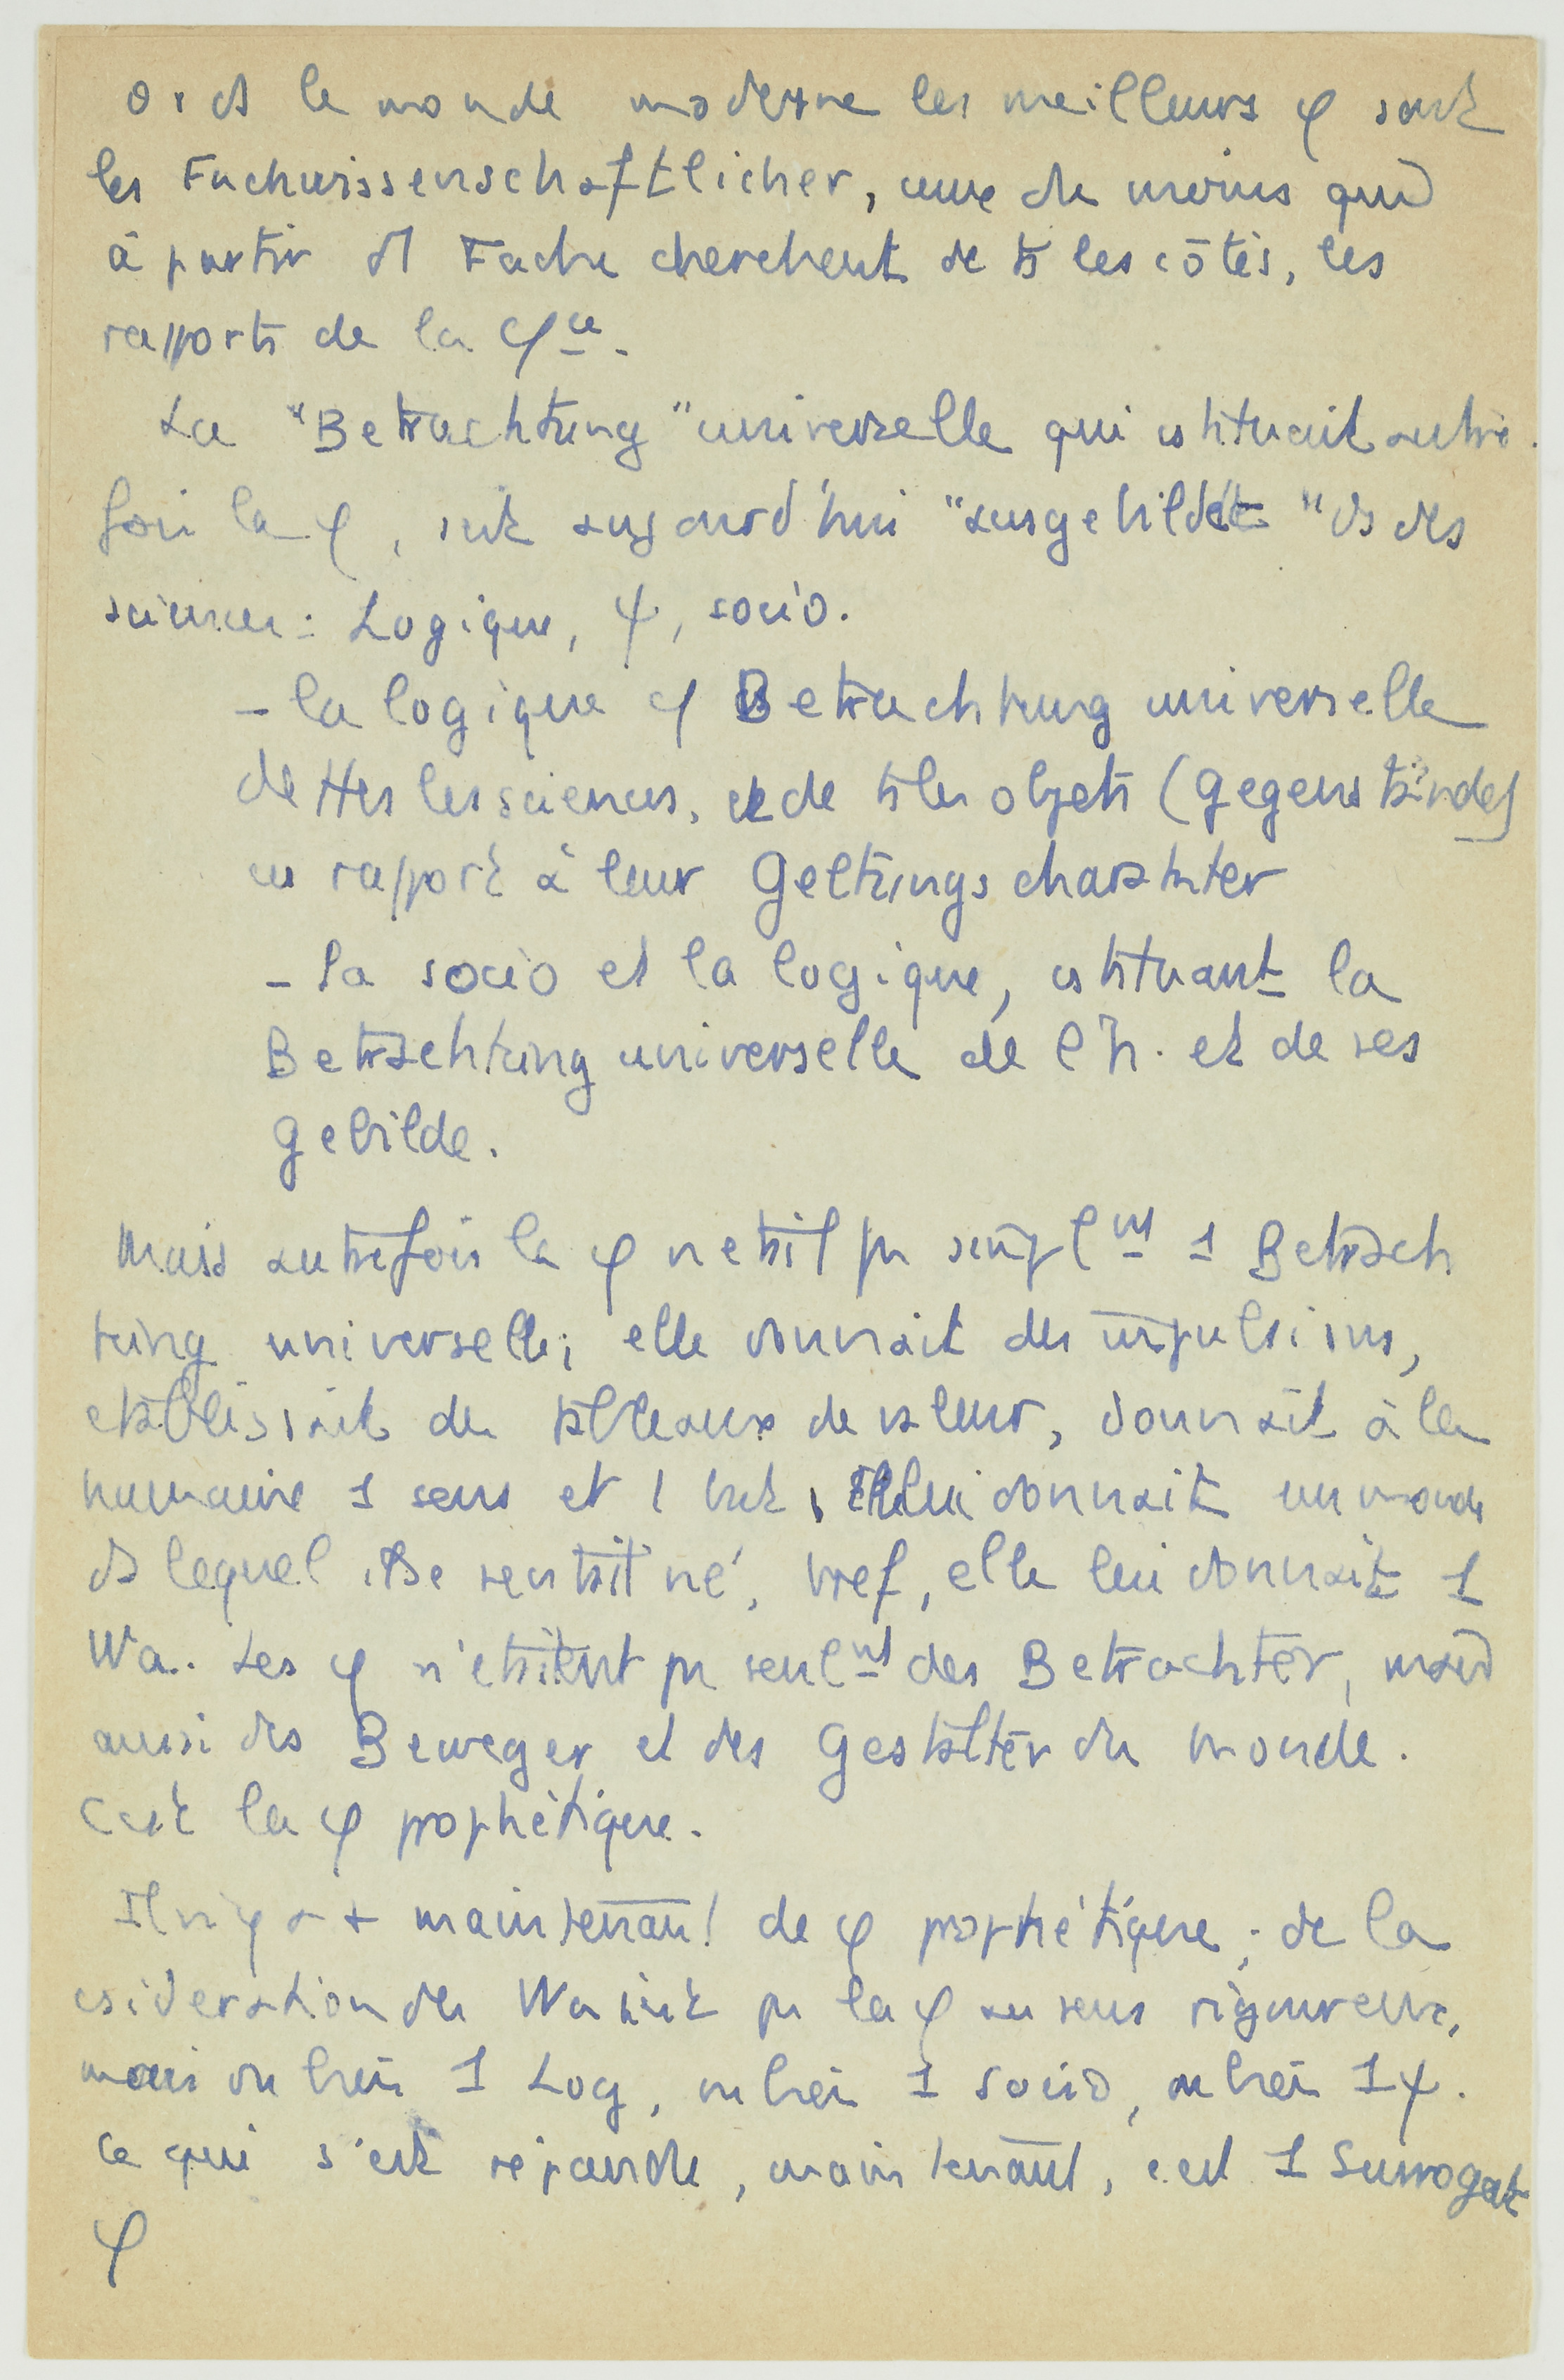 Or ds le monde moderne les meilleurs φ sont
les Fachwissenschaftlicher, ceux du moins qui
à partir d1 Fache cherchent de ts les côtés, les
rapports de la φce.
La "Betrachtung" universelle qui cstituait autre
fois la φ, s'est aujourd'hui "ausgebildet" ds des
sciences : Logique, ψ, socio.
- la logique cf Betrachtung universelle
de ttes les sciences, et de ts les objets (Gegenstände)
en rapport à leur Geltungscharakter
- la socio et la logique, cstituant la
Betrachtung universelle de l'h. et de ses
Gebilde.
Mais autrefois la φ n'etait pas simplmt 1 Betrach
tung universelle; elle donnait des impulsions,
etablissait des tableaux de valeur, donnait à la
humaine 1 sens et 1 but, Elle lui donnait un monde
ds lequel il se sentait né, bref, elle lui donnait 1
Wa.. Les φ n'etaient pas seulmt des Betrachter, mais
aussi des Beweger et des Gestalter du monde.
C'est la φ prophétique.
Il n'y a + maintenant de φ prophétique ; de la
csideration des Wa n'est pas la φ au sens rigoureux,
mais ou bien 1 Log, ou bien 1 socio, ou bien 1 ψ.
Ce qui s'est répandu, maintenant, c'est 1 Surrogat
φ